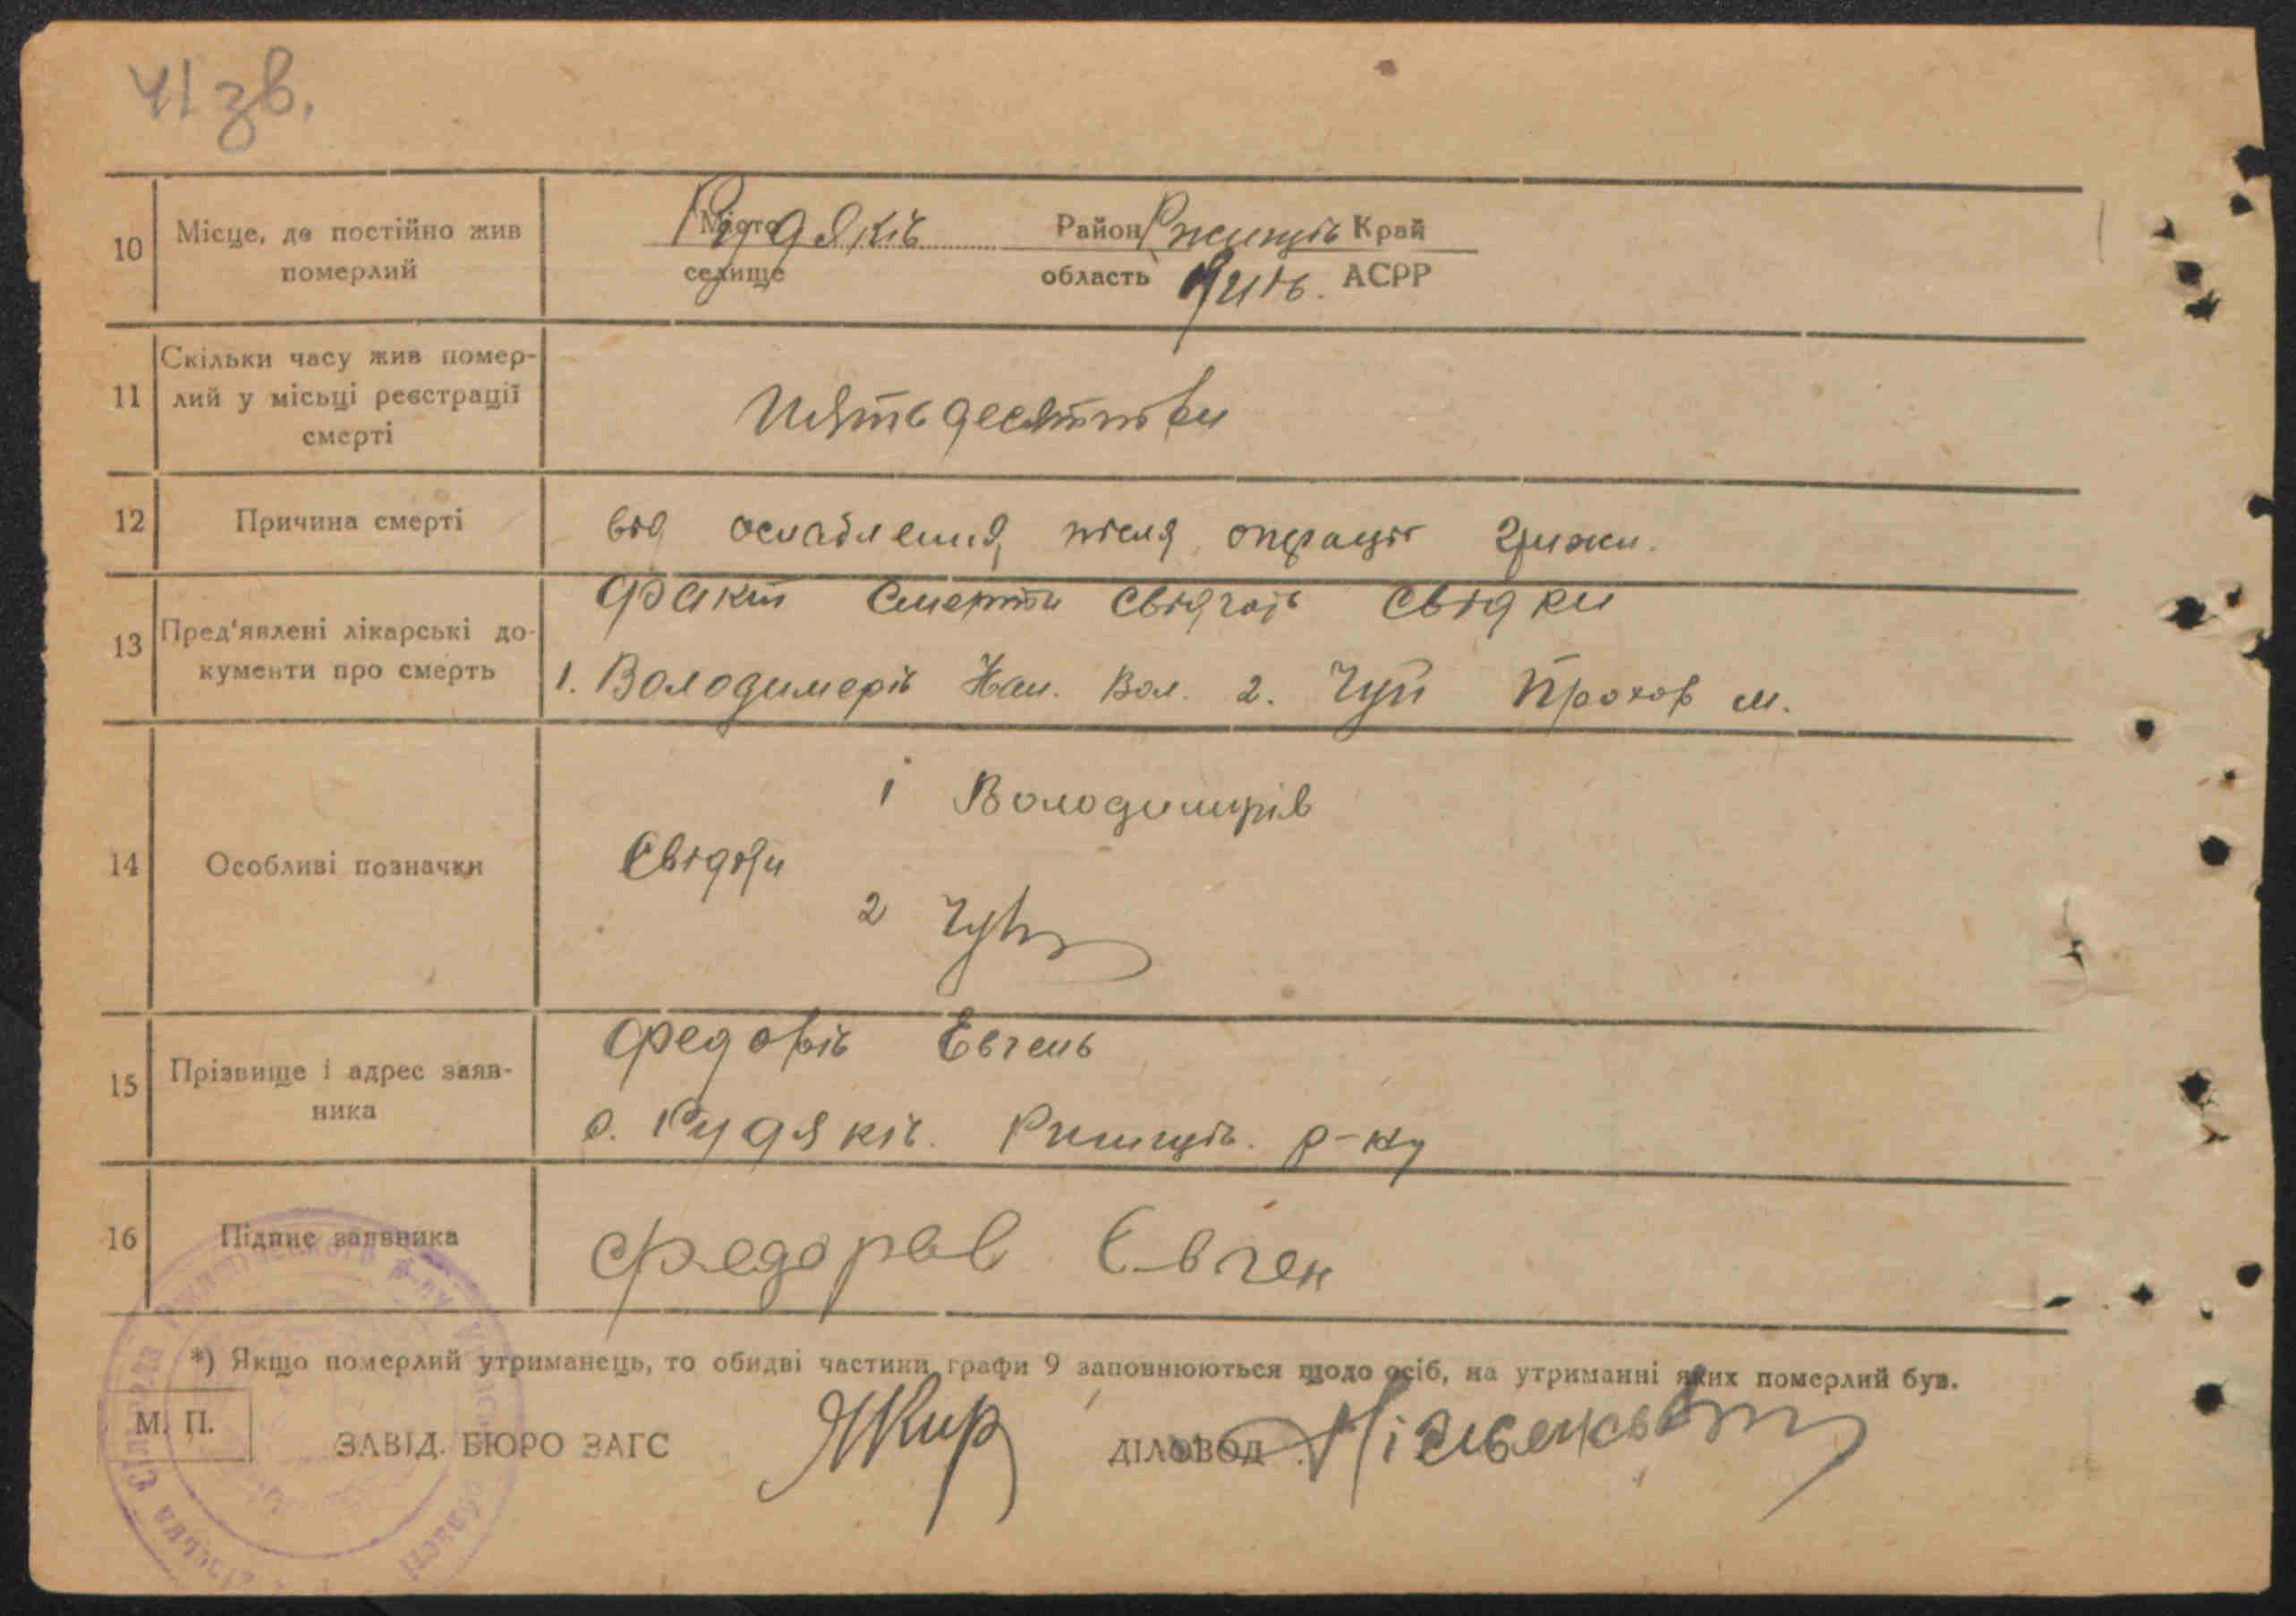 41 зв.
10 Місце, де постійно жив померлий
Місто Рудяків Район Ржищів Край
селище область АСРР
11 Скільки часу жив помер-
лий у місьці реєстрації
смерті
12 Причина смерті від ослаблення після операціі грижи.
13 Пред'явлені лікарські до-
кументи про смерть
факт смерти свідчать свідки
1. Володимерів Вол. 2. Чуй Прохор м.
14 Особливі позначки
1 Володимирів
Свідки
2 Чуй
15 Прізвище і адрес заяв-
ника
Федорів Евгень
с. Рудяків. Ржищів. р-ну
16 Підпис заявника Федоров Євген
*) Якщо померлий утриманець, то обидві частини графи 9 заповнюються щодо осіб, на утриманні яких померлий був.
М. П.
ЗАВІД. БЮРО ЗАГС ДІЛОВОД